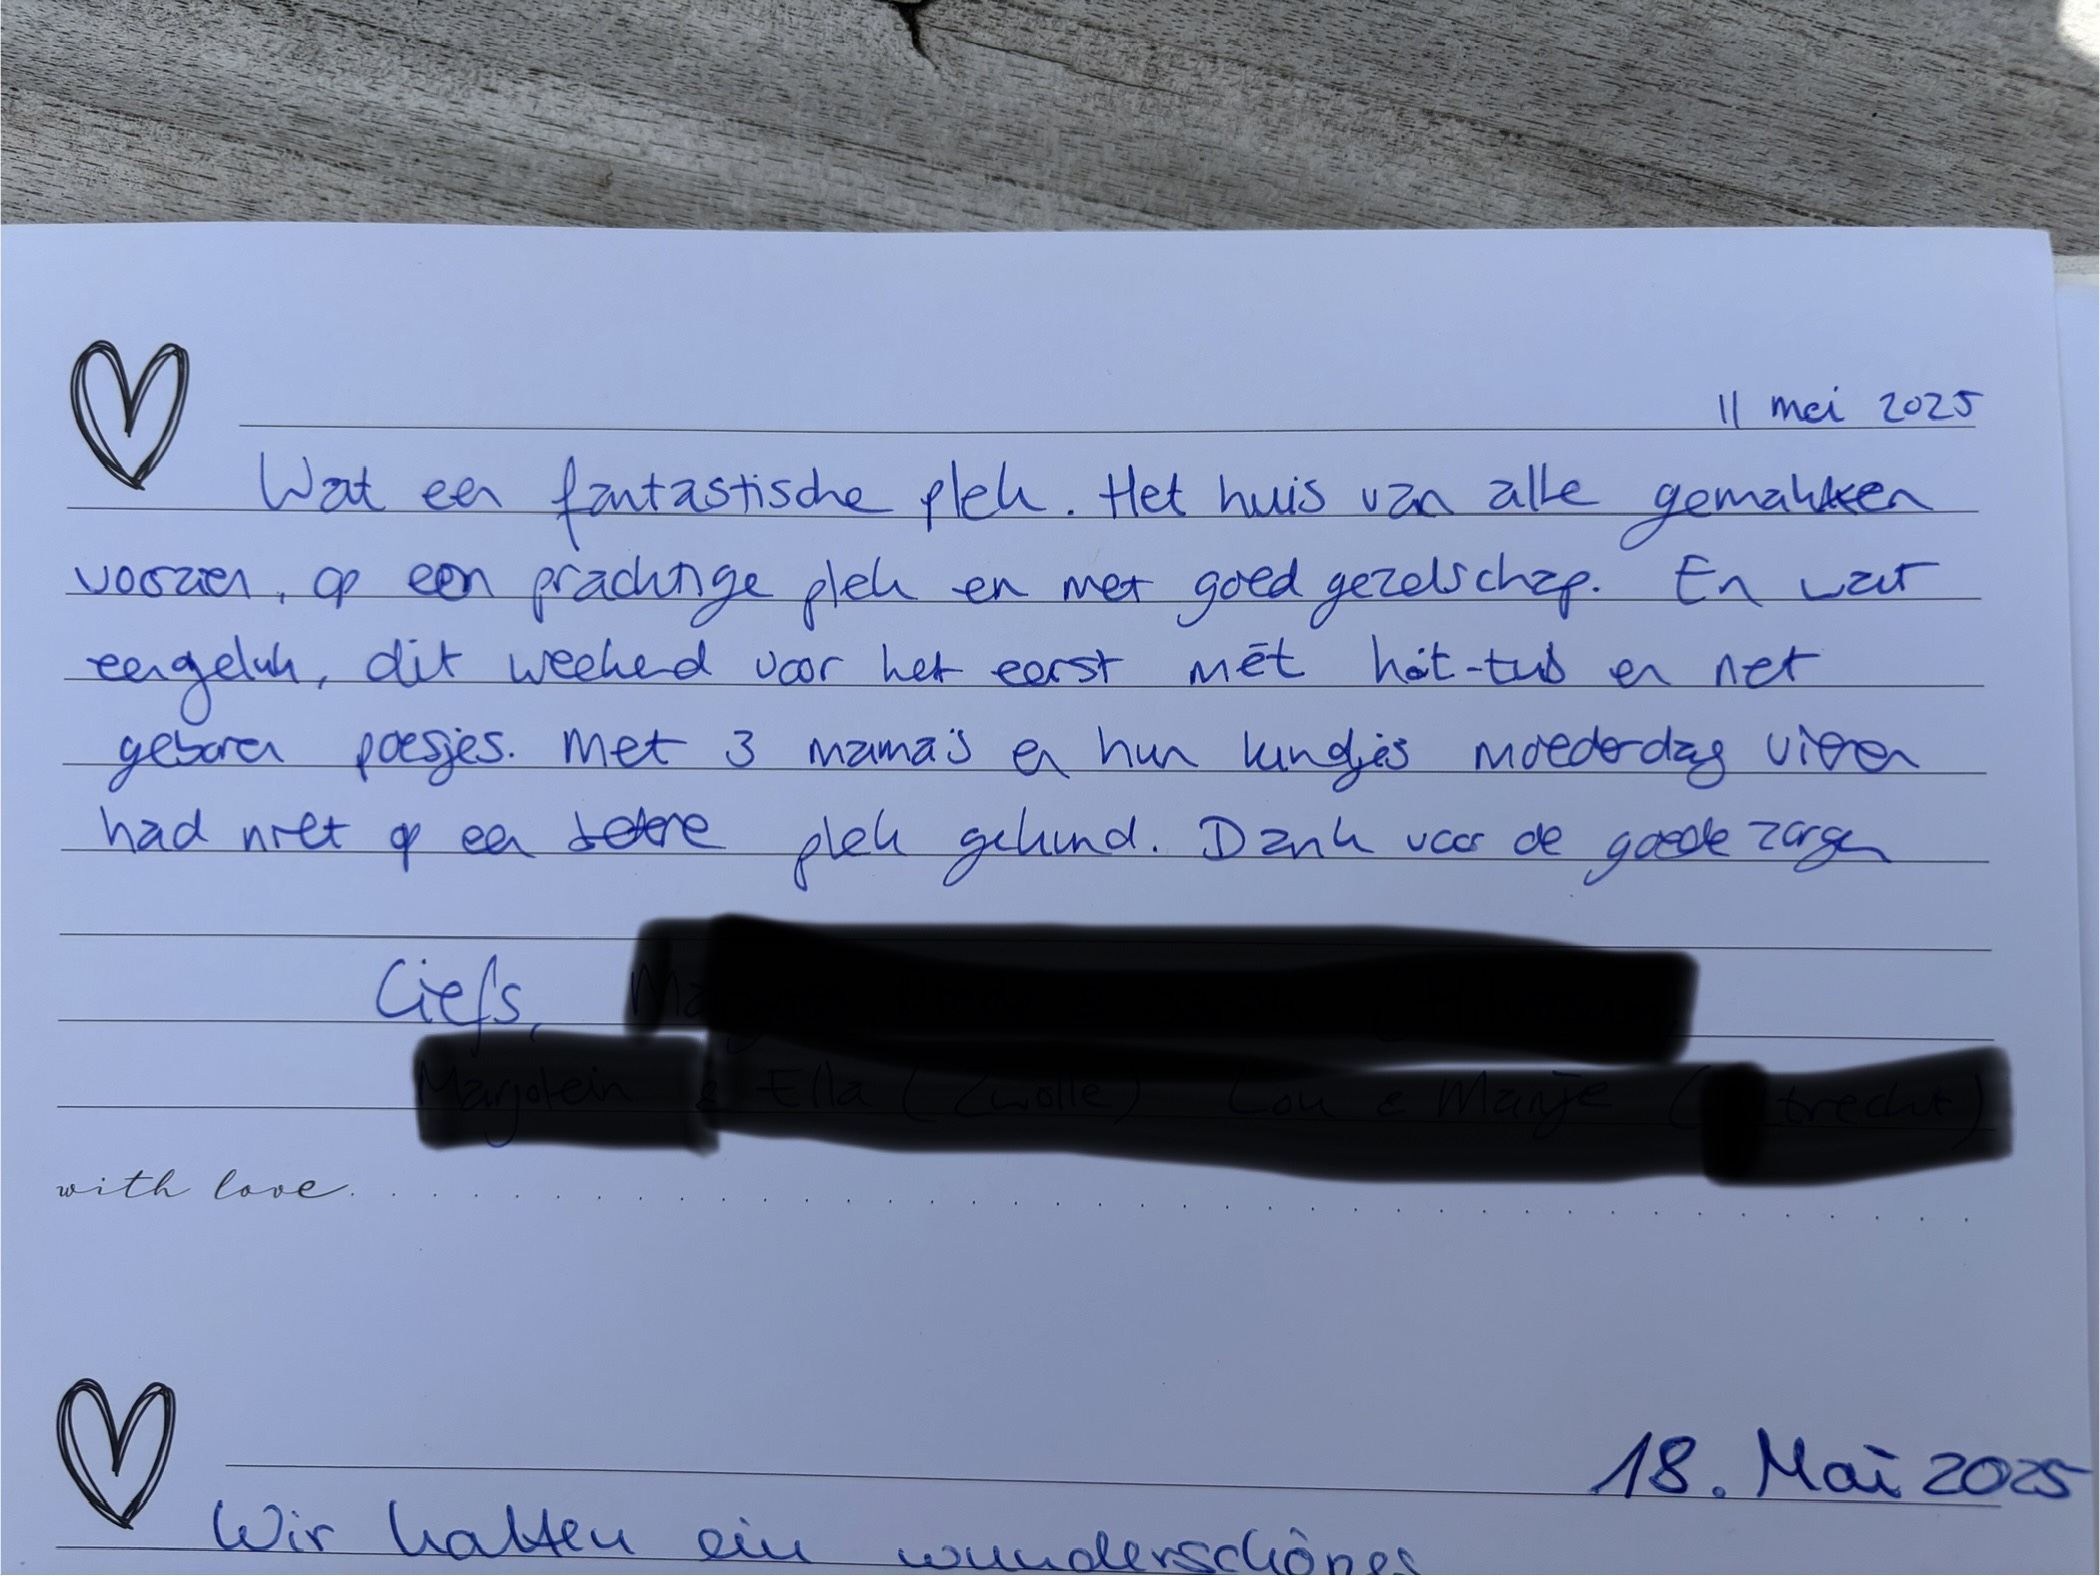 11 mei 2025
Wat een fantastische plek. Het huis van alle gemakken
voorzien, op een prachtige plek en met goed gezelschap. En wat
een geluk, dit weekend voor het eerst mét hot-tub en net
geboren poesjes. Met 3 mama's en hun kindjes moederdag vieren
had niet op een betere plek gekund. Dank voor de goede zorgen
Liefs,
with love
18. Mai 2025
Wir hatten ein wunderschönes